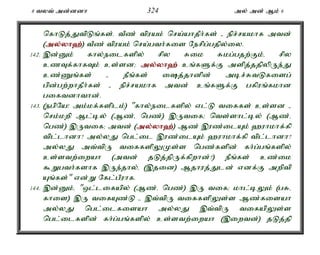 8 வலவ் அன்னனா 324 அல் அன் ஆம் 6
கொடுத்துவிடுங்கள். வீண் விரயம் செய்யாதீர்கள் - நிச்சயமாக அவன்
(அல்லாஹ்) வீண் விரயம் செய்பவர்களை நேசிப்பதில்லை.
142. இன்னும் கால்நடைகளில் சில சுமை சுமப்பதற்கும், சில
உணவுக்காகவும் உள்ளன; அல்லாஹ் உங்களுக்கு அளித்ததிலிருந்து
உண்ணுங்கள் - நீங்கள் ஷைத்தானின் அடிச்சுவடுகளைப்
பின்பற்றாதீர்கள் - நிச்சயமாக அவன் உங்களுக்கு பகிரங்கமான
பகைவனாவான்.
143. (நபியே! அம்மக்களிடம்) "கால்நடைகளில் எட்டு வகைகள் உள்ளன -
செம்மறி ஆட்டில் (ஆண், பெண்) இருவகை; வெள்ளாட்டில் (ஆண்,
பெண்) இருவகை; அவன் (அல்லாஹ்) ஆண் இரண்டையும் ஹராமாக்கி
விட்டானா? அல்லது பெட்டை இரண்டையும் ஹராமாக்கி விட்டானா?
அல்லது அவ்விரு வகைகளிலுமுள்ள பெண்களின் கர்ப்பங்களில்
உள்ளவற்றையா (அவன் தடுத்திருக்கிறான்?) நீங்கள் உண்மை
கூறுபவர்களாக இருந்தால், (இதனை) ஆதாரத்துடன் எனக்கு அறிவி
யுங்கள்" என்று கேட்பீராக.
144. இன்னும், "ஒட்டகையில் (ஆண், பெண்) இரு வகை; மாட்டிலும் (பசு,
காளை) இரு வகையுண்டு - இவ்விரு வகைகளிலுள்ள ஆண்களையா
அல்லது பெட்டைகளையா அல்லது இவ்விரு வகையிலுள்ள
பெட்டைகளின் கர்ப்பங்களில் உள்ளவற்றையா (இறைவன்) தடுத்தி